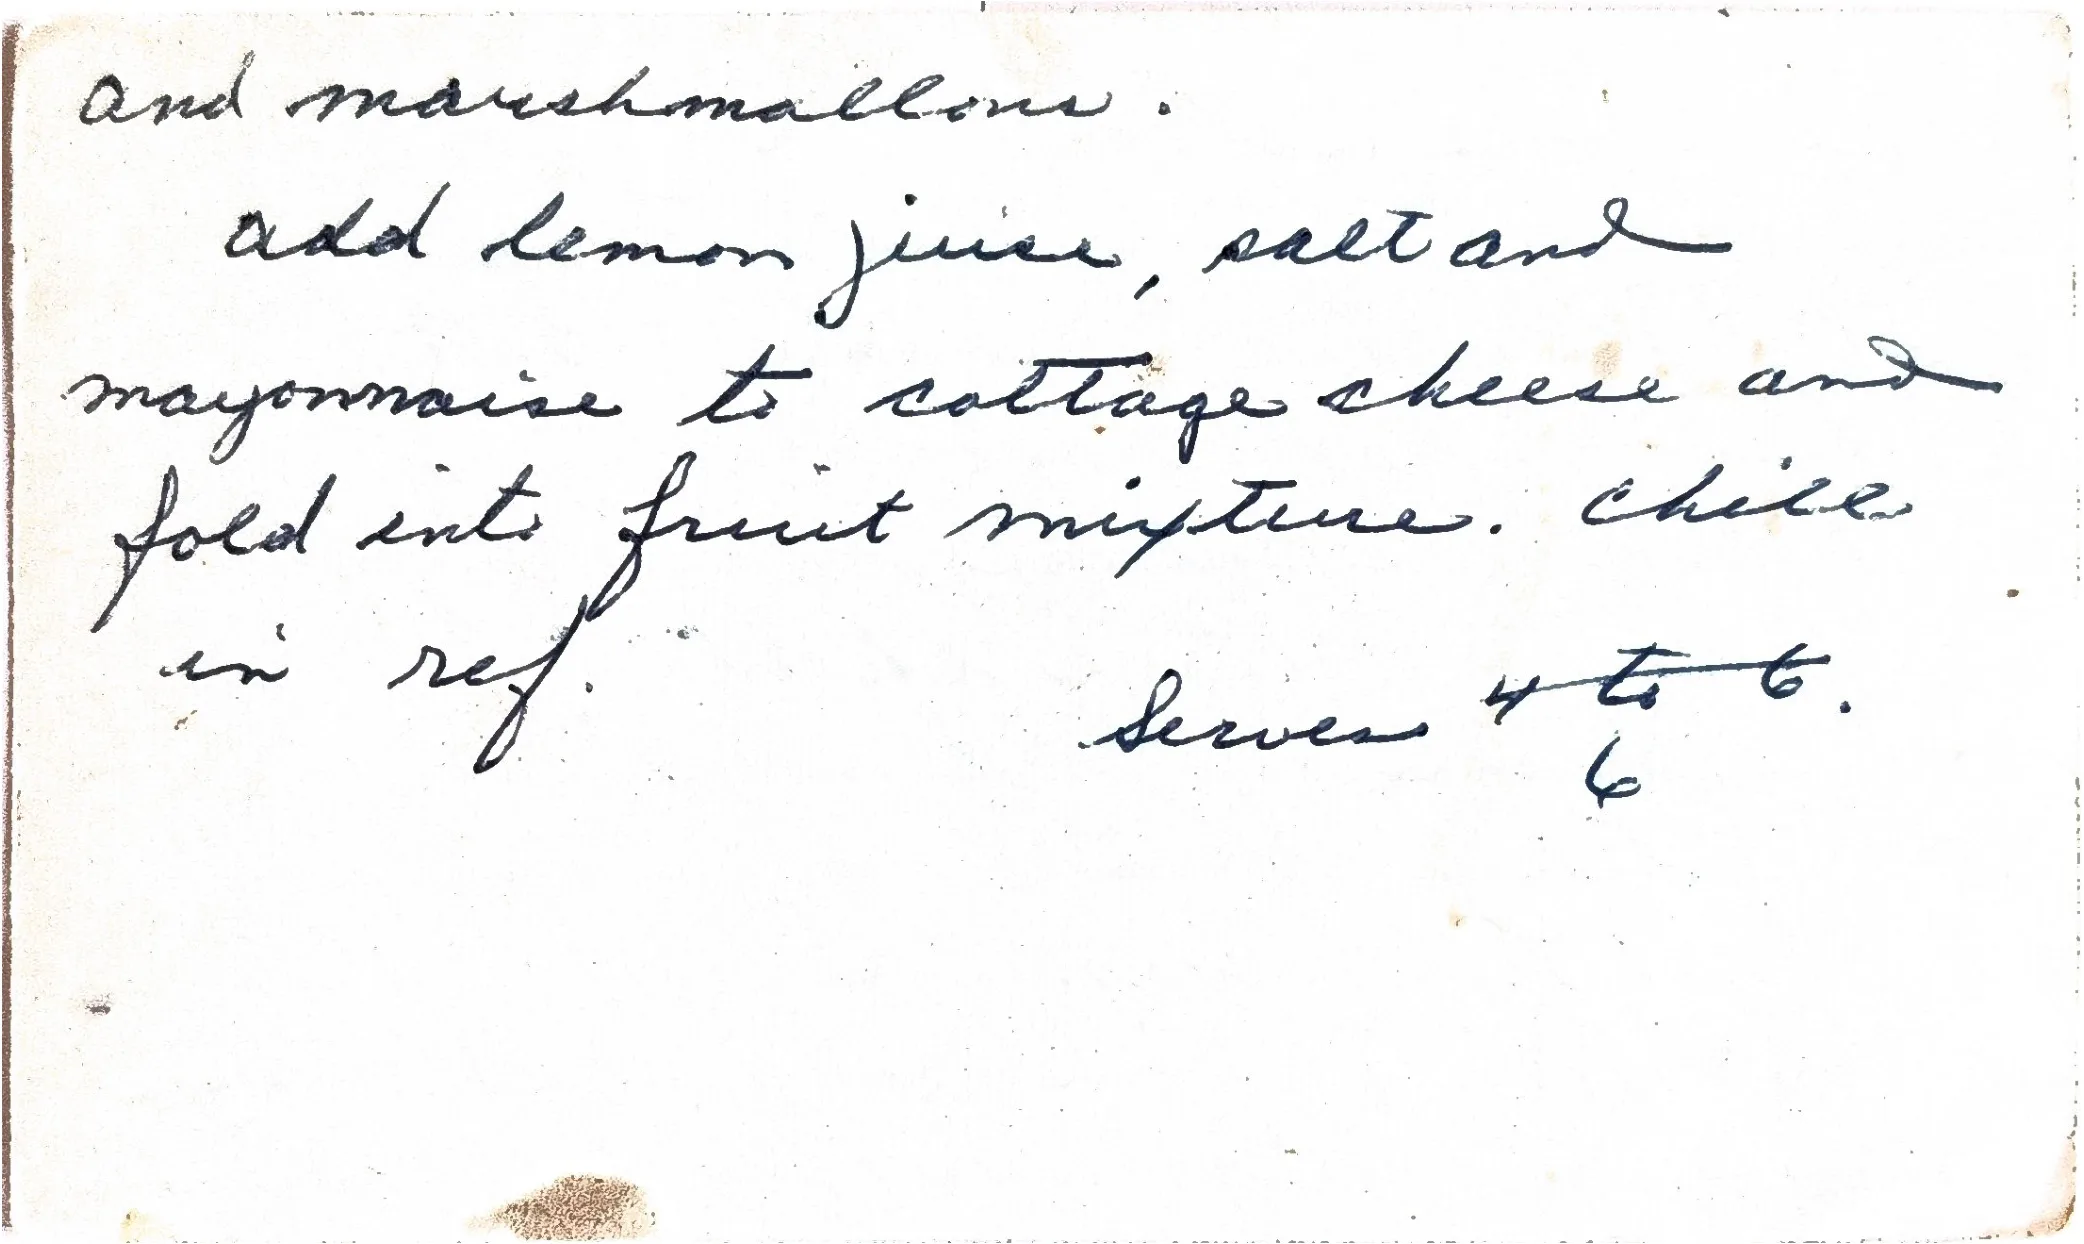 and marshmallows.
add lemon juice, salt and
mayonnaise to cottage cheese and
fold into fruit mixture. Chill
in ref.
Serves 4 to 6.
6